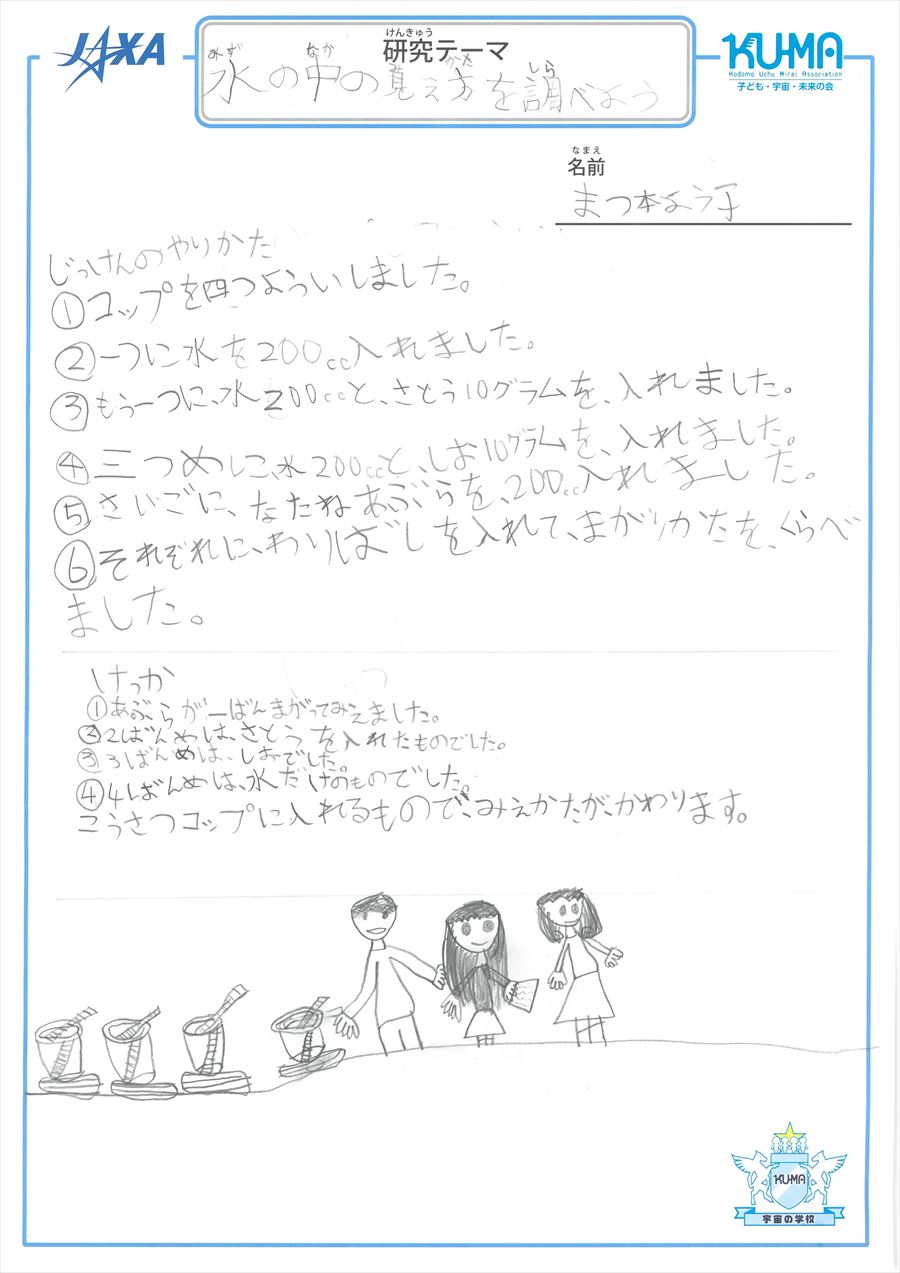 JAXA
けんきゅう
研究テーマ
みず なか かた しら
水の中の覚え方を調べよう
KU-MA
Kodomo Uchu Mirai Association
子ども・宇宙・未来の会
なまえ
名前
まつ本よう子
じっけんのやりかた
①コップを四つよういしました。
②一つに水を200cc入れました。
③もう一つに、水200ccと、さとう10グラムを、入れました。
④三つめに、水200ccと、しお10グラムを、入れました。
⑤さいごに、なたねあぶらを、200cc入れました。
⑥それぞれに、わりばしを入れて、まがりかたを、くらべ
ました。
けっか
①あぶらが一ばんまがってみえました。
②2ばんめは、さとうを入れたものでした。
③3ばんめは、しおでした。
④4ばんめは、水だけのものでした。
こうさつコップに入れるもので、みえかたが、かわります。
KU-MA
宇宙の学校